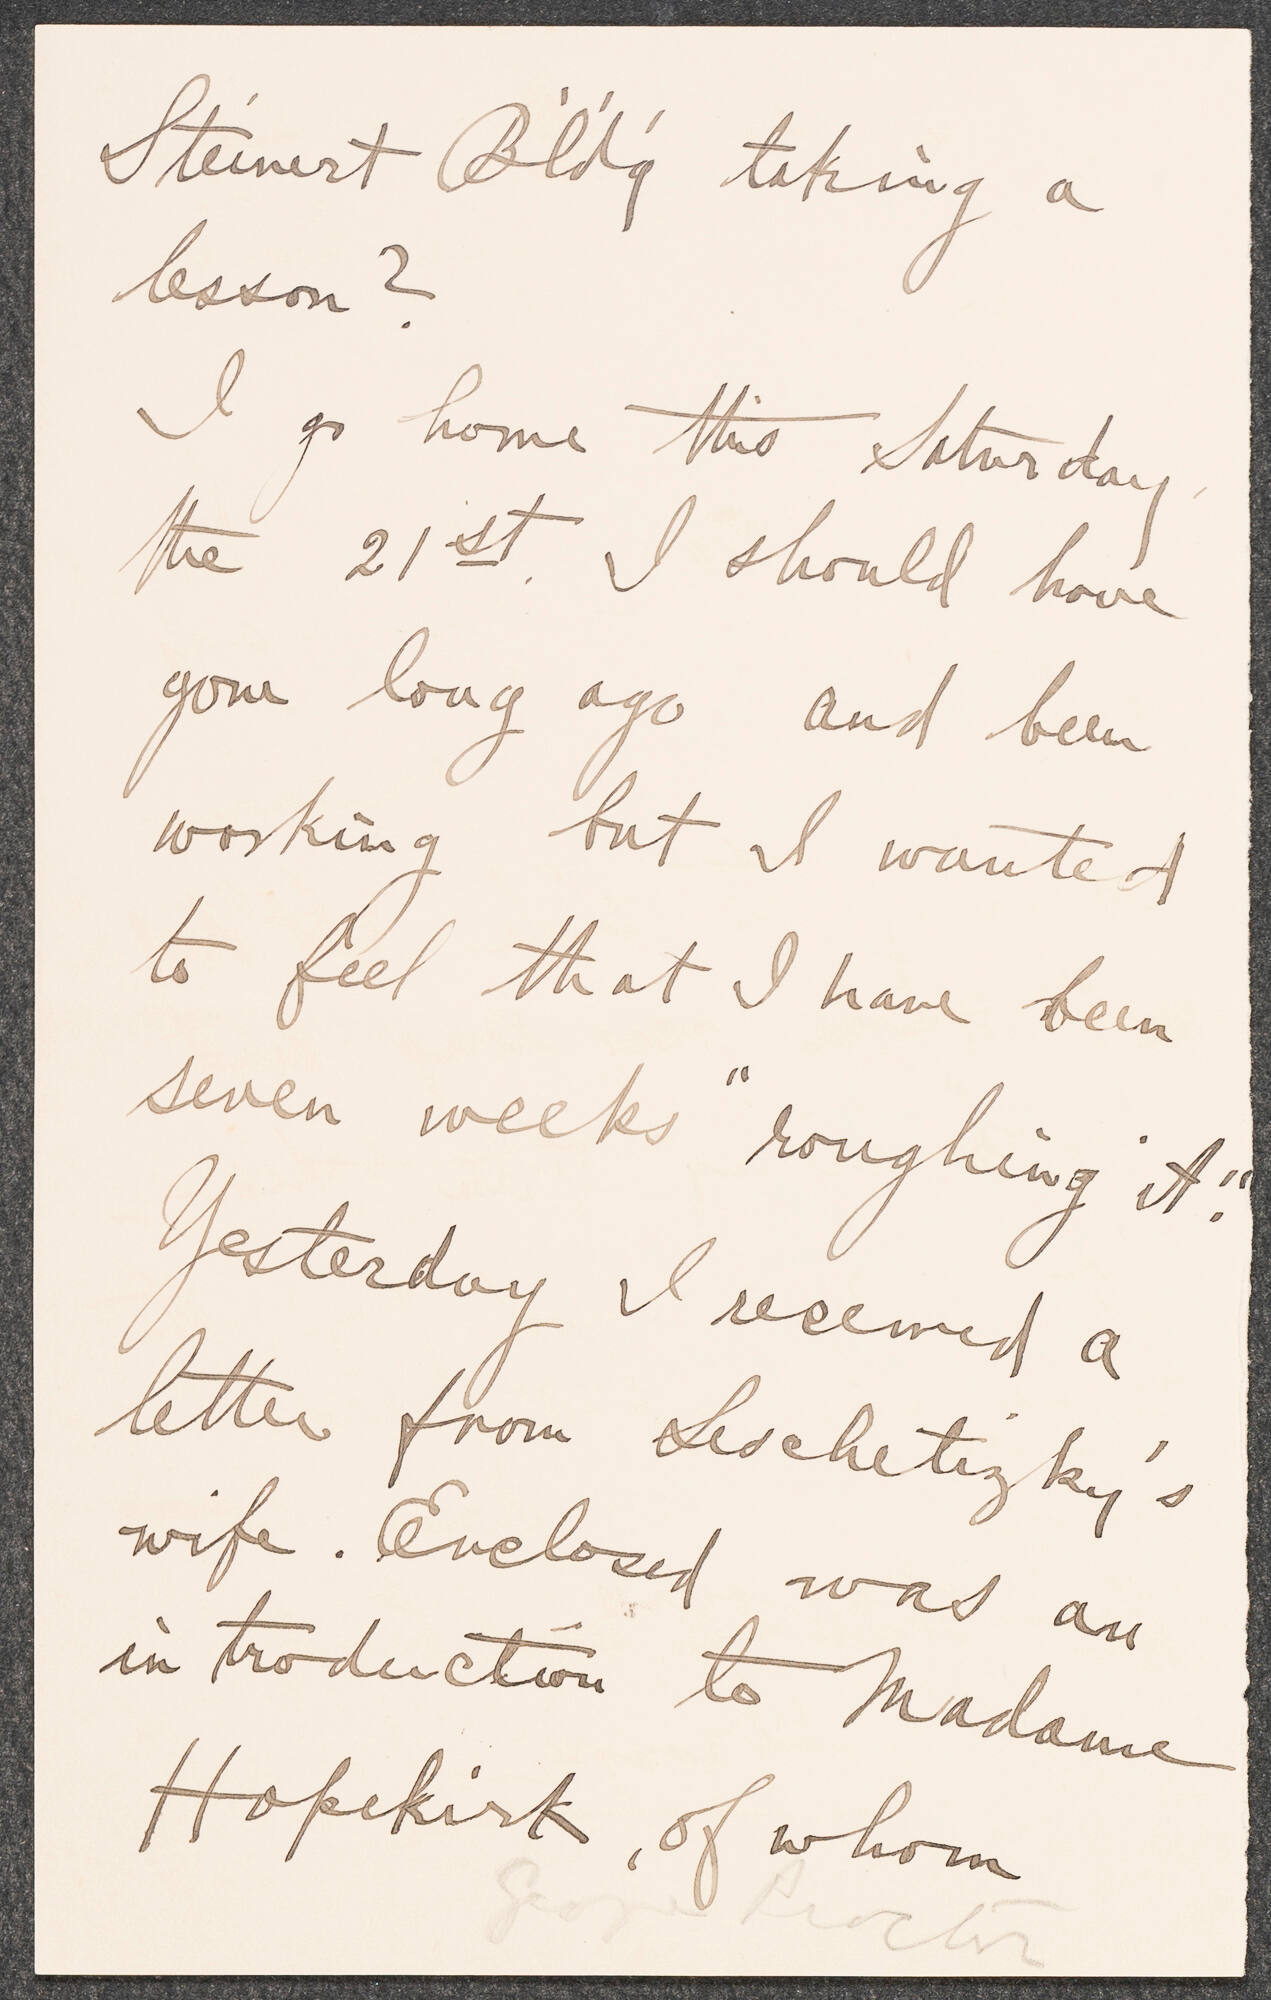 Steinert B'l'd'g taking a
lesson?
I go home this Saturday,
the 21st. I should have
gone long ago and been
working but I wanted
to feel that I have been
seven weeks "roughing it."
Yesterday I received a
letter from Leschetizky's
wife. Enclosed was an
introduction to Madame
Hopekirk, of whom
George Proctor